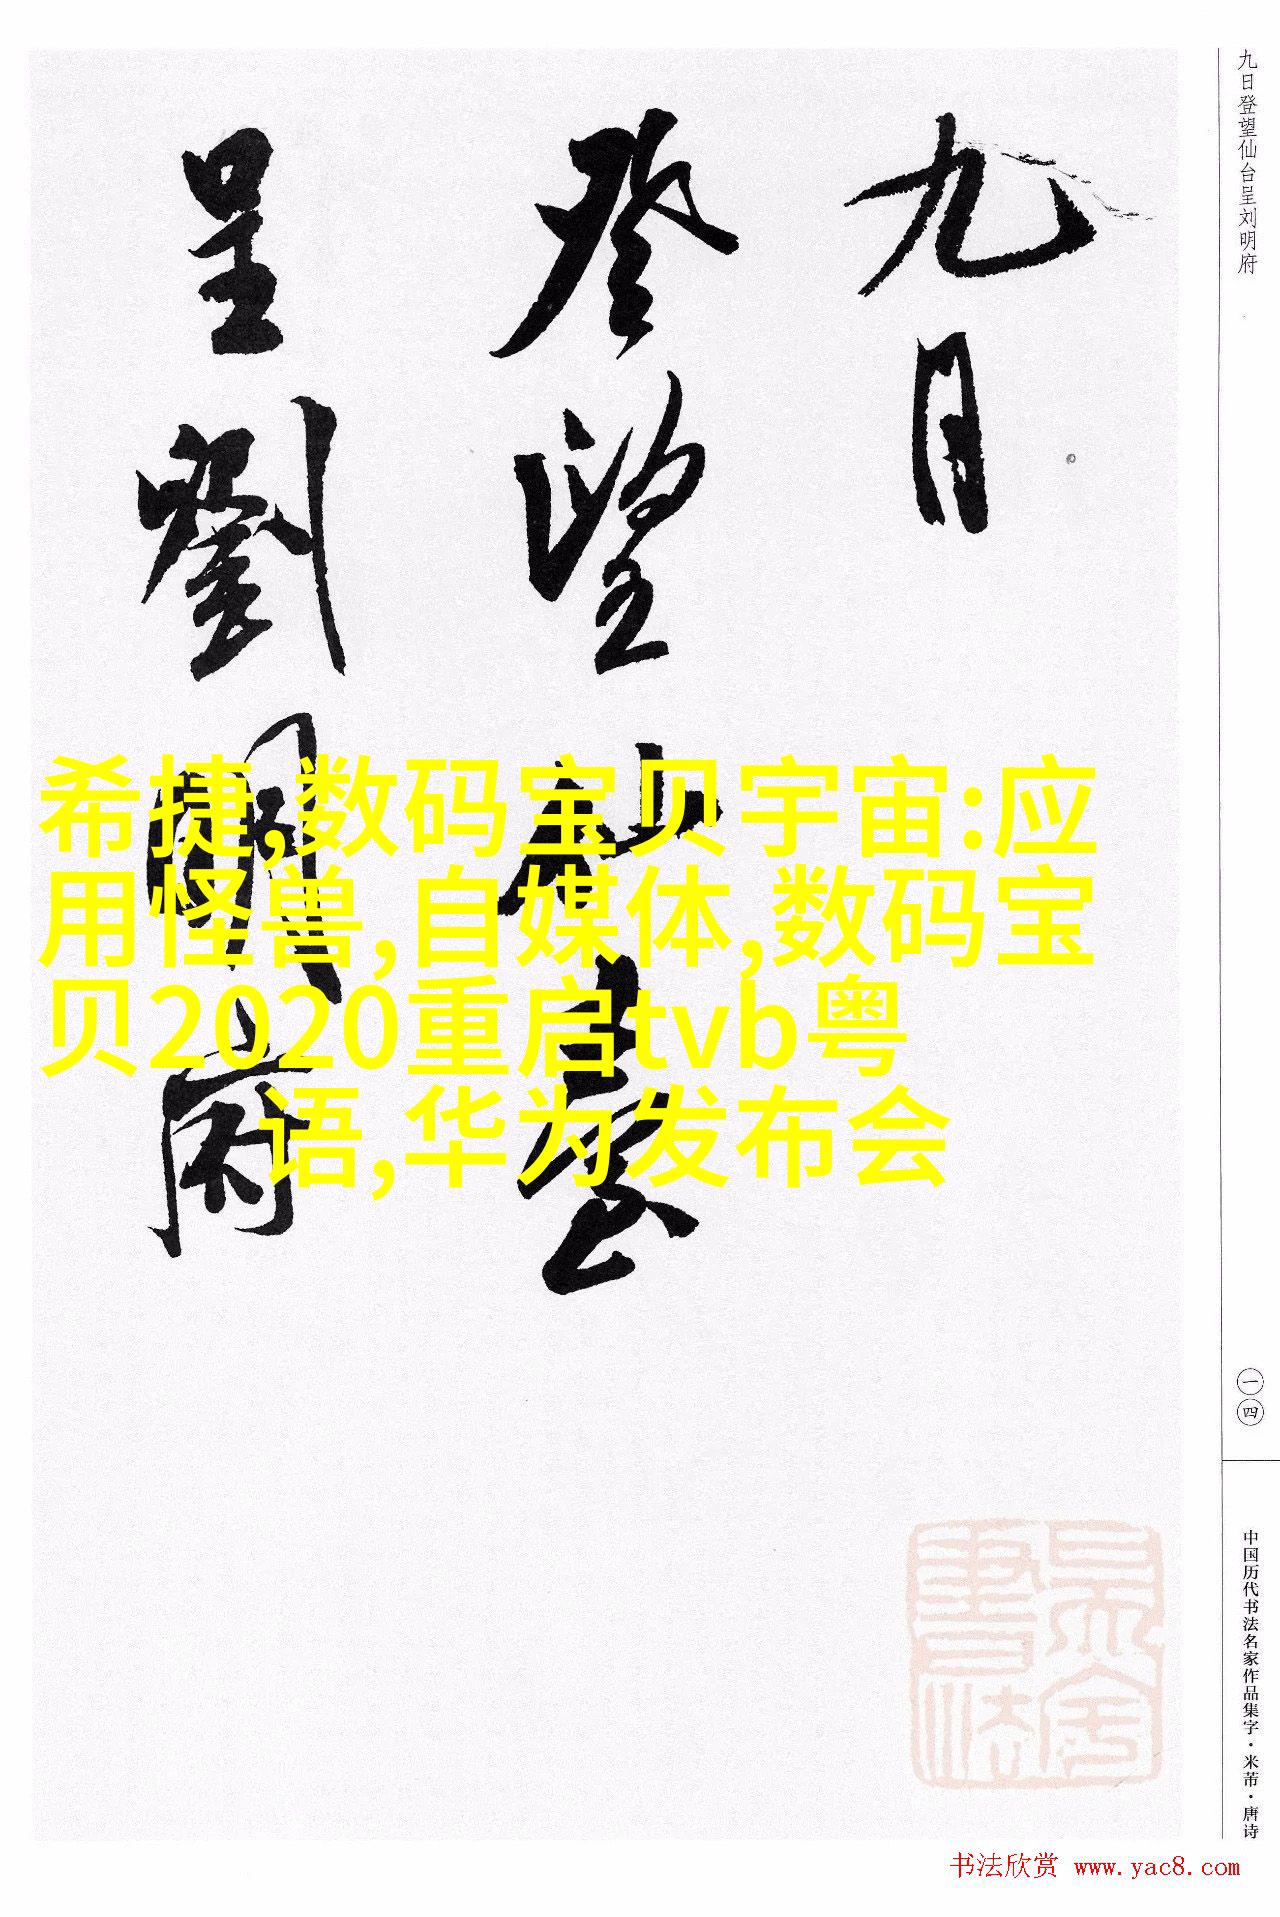 九日
登望仙臺
呈劉明府
希捷,数码宝贝宇宙:应
用怪兽,自媒体,数码宝
贝2020重启tvb粤
语,华为发布会
九日登望仙台呈刘明府
一四
中国历代书法名家作品集字·米芾·唐诗
书法欣赏 www.yac8.com